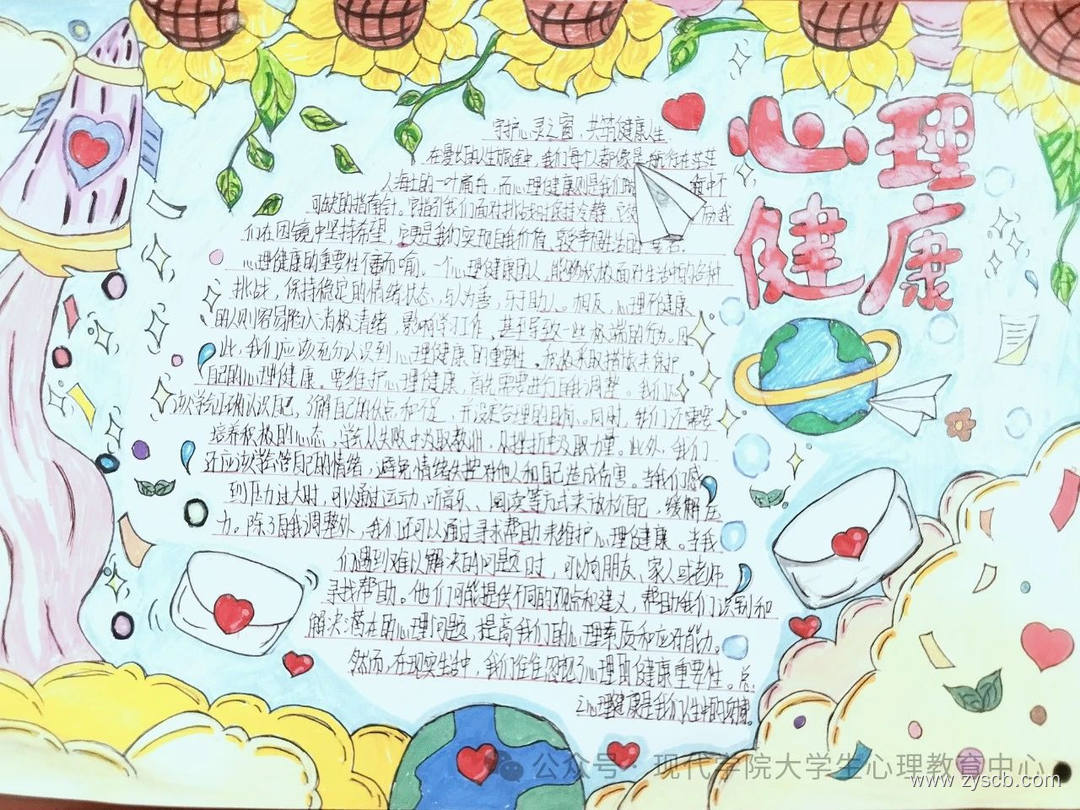 心理
健康
守护心灵之窗，共筑健康人生
在漫长的人生旅途中，我们每个人都像是航行在茫茫
人海上的一叶扁舟，而心理健康则是我们
可缺的指南针。它指引我们面对挑战时保持冷静，
们在困境中坚持希望，它更是我们实现自我价值，享受幸福生活的
心理健康的重要性不言而喻。一个心理健康的人，能够积极面对生活中的各种
挑战，保持稳定的情绪状态，与人为善，乐于助人。相反，心理不健康
的人则容易陷入消极情绪，影响学习工作，甚至导致一些极端的行为。因
此，我们应该充分认识到心理健康的重要性。积极采取措施来保护
自己的心理健康。要维护心理健康，首先需要进行自我调整。我们应
该学会正确认识自己，了解自己的优点和不足，并设定合理的目标。同时，我们还需要
培养积极的心态，学会从失败中汲取教训，从挫折中汲取力量。此外，我们
还应该学会管自己的情绪，避免情绪失控对他人和自己造成伤害。当我们感
到压力过大时，可以通过运动、听音乐、阅读等方式来放松自己，缓解压
力。除了自我调整外，我们还可以通过寻求帮助来维护心理健康。当我
们遇到难以解决的问题时，可以向朋友、家人或老师
寻找帮助。他们可能提供不同的观点和建议，帮助我们识别和
解决潜在的心理问题，提高我们的心理素质和应对能力。
然而，在现实生活中，我们往往忽视了心理的健康重要性。总
之心理健康是我们人生中的
公众号 · 现代学院大学生心理教育中心
www.zyscb.com